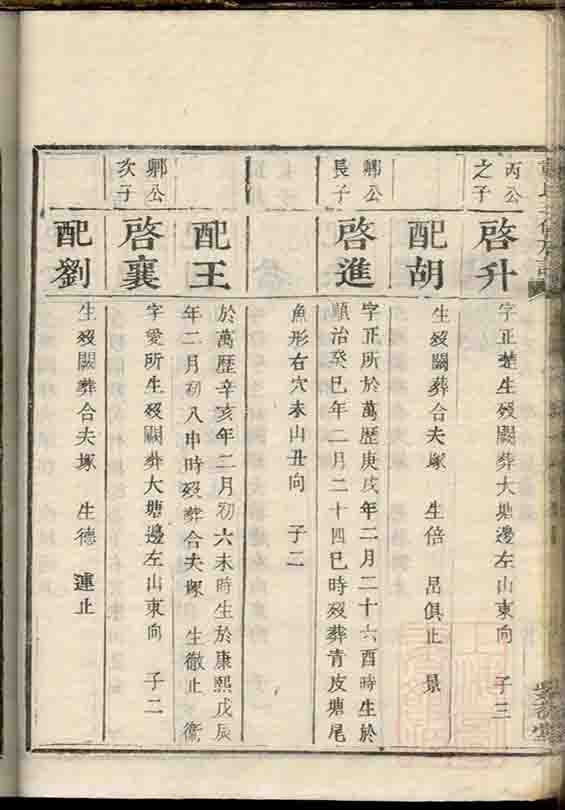 丙公之子
啓升
字正楚生殁闕葬大塘邊左山東向 子三
配胡
生殁闕葬合夫塚 生倍 昷俱止 景
鄉公長子
啓進
字正所於萬歷庚戌年二月二十六酉時生於
順治癸巳年二月二十四巳時殁葬青皮塘尾
魚形右穴未山丑向 子二
配王
於萬歷辛亥年二月初六未時生於康熙戊辰
年二月初八申時殁葬合夫塚 生徹止 衞
鄉公次子
啓襄
字愛所生殁闕葬大塘邊左山東向 子二
配劉
生殁闕葬合夫塚 生德 連止